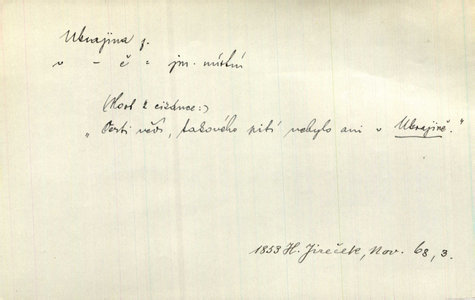 Ukrajina f.
v - ě = jm. místní
(Host z cizince:)
"Čerti vědí, takového pití nebylo ani v Ukrajině."
1853 H. Jireček, Nov. 68, 3.